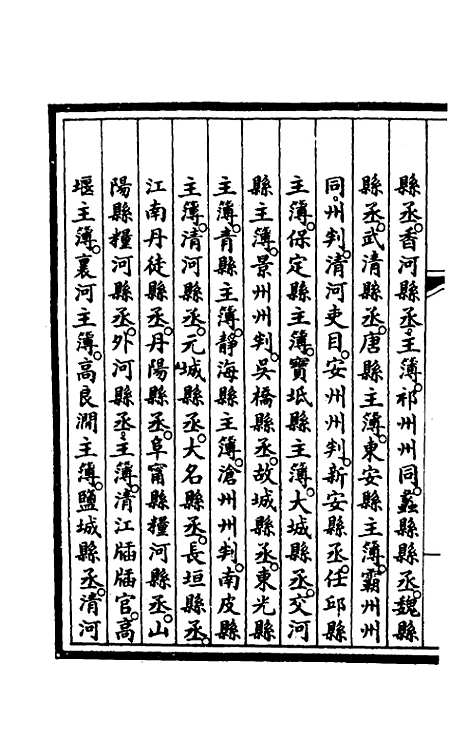 縣丞。香河縣丞。主簿。祁州州同。蠡縣縣丞。魏縣
縣丞。武清縣丞。唐縣主簿。東安縣主簿。霸州州
同。州判。清河吏目。安州州判。新安縣丞。任邱縣
主簿。保定縣主簿。寶坻縣主簿。大城縣丞。交河
縣主簿。景州州判。吳橋縣丞。故城縣丞。東光縣
主簿。青縣主簿。靜海縣主簿。滄州州判。南皮縣
主簿。清河縣丞。元城縣丞。大名縣丞。長垣縣丞。
江南丹徒縣丞。丹陽縣丞。阜甯縣糧河縣丞。山
陽縣糧河縣丞。外河縣丞。主簿。清江牐牐官。高
堰主簿。裏河主簿。高良澗主簿。鹽城縣丞。清河